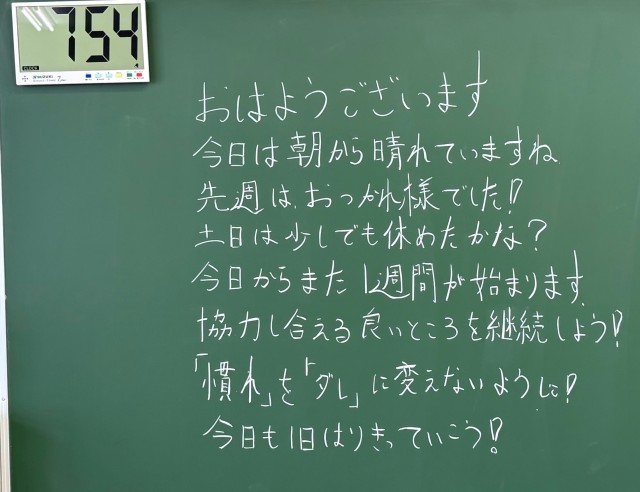 754
CLOCK
おはようございます
今日は朝から晴れていますね
先週は、おつかれ様でした!
土日は少しでも休めたかな?
今日からまた1週間が始まります。
協力し合える良いところを継続しよう!
「慣れ」を「ダレ」に変えないように!
今日も1日はりきっていこう!